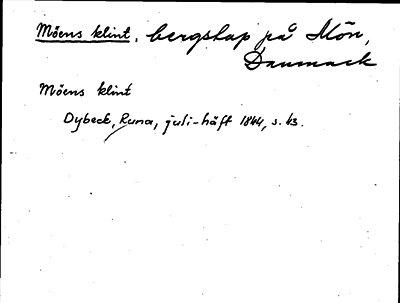 Möens klint, bergskap på Mön,
Danmark
Möens klint
Dybeck, Runa, juli-häft 1844, s. 43.